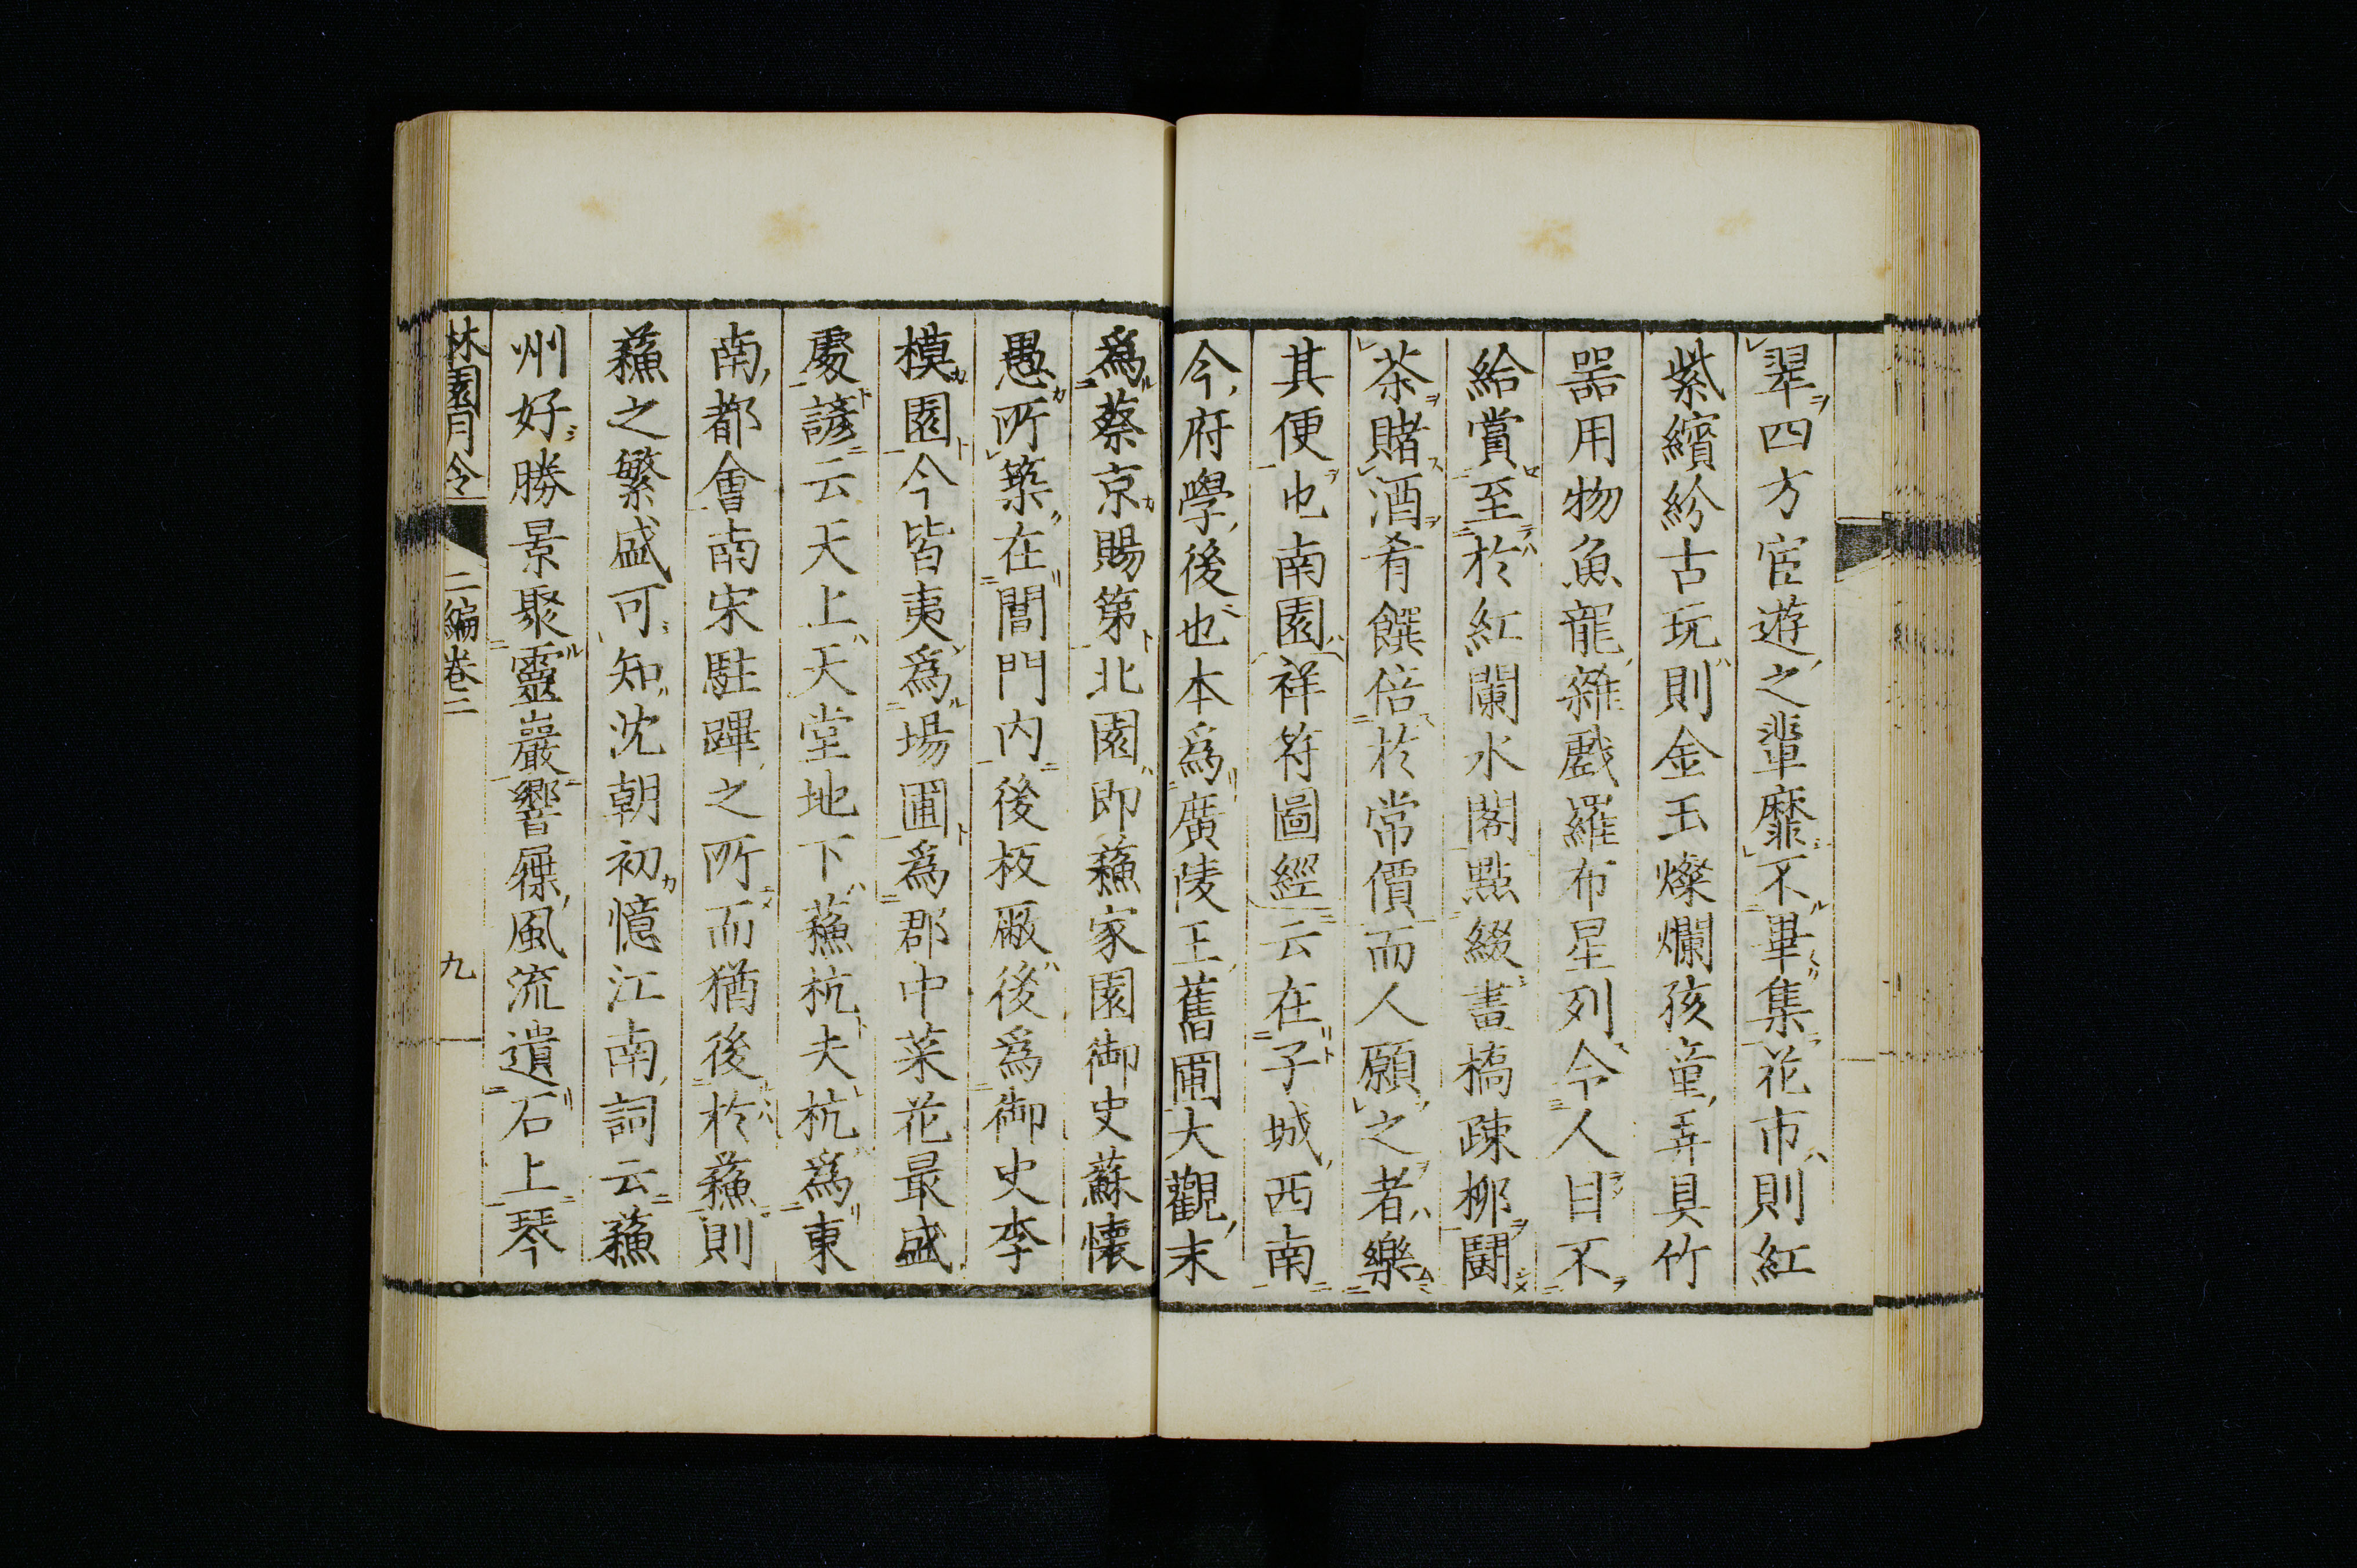 翠四方宦遊之輩靡不畢集花市則紅
紫繽紛古玩則金玉燦爛孩童弄具竹
器用物魚龍雜戲羅布星列令人目不
給賞至於紅闌水閣點綴畫橋疎柳鬪
茶賭酒肴饌倍於常價而人願之者樂
其便也南園祥符圖經云在子城西南
今府學後也本爲廣陵王舊圃大觀末
爲蔡京賜第北園即蘓家園御史蘇懷
愚所築在閶門內後板厰後爲御史李
模園今皆夷爲場圃爲郡中菜花最盛
處諺云天上天堂地下蘓杭夫杭爲東
南都會南宋駐蹕之所而猶後於蘓則
蘓之繁盛可知沈朝初憶江南詞云蘓
州好勝景聚靈巖響屧風流遺石上琴
林園月令 二編卷二 九